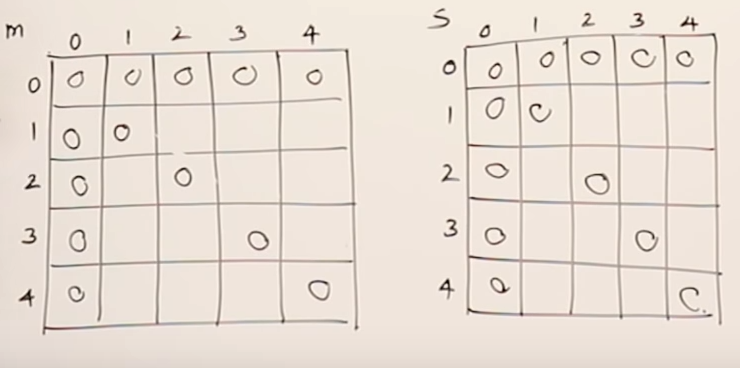 m 0 1 2 3 4
0 0 0 0 0 0
1 0 0
2 0 0
3 0 0
4 0 0
S 0 1 2 3 4
0 0 0 0 0 0
1 0 0
2 0 0
3 0 0
4 0 0